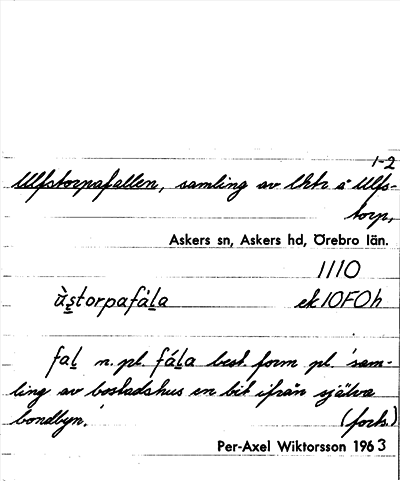 1-2
Ulfstorpafallen, samling av lhtr å Ulfs-
torp,
Askers sn, Askers hd, Örebro län.
1110
ùstorpafála ek 10F0h
fal n. pl. fála best. form pl. 'sam-
ling av bostadshus en bit ifrån själva
bondbyn.' (forts.)
Per-Axel Wiktorsson 1963